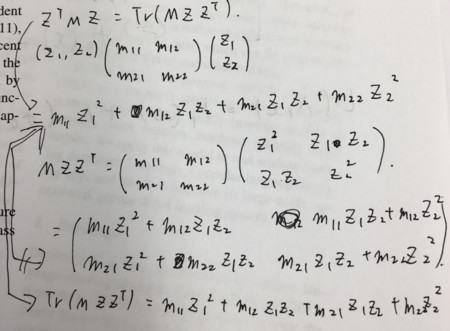 dent
11),
cent
the
by
unc-
ap-
ure
ass
Z^T M Z = Tr(M Z Z^T).
(z_1, z_2) ( m_11 m_12 ; m_21 m_22 ) ( z_1 ; z_2 )
= m_11 z_1^2 + m_12 z_1 z_2 + m_21 z_1 z_2 + m_22 z_2^2
M Z Z^T = ( m_11 m_12 ; m_21 m_22 ) ( z_1^2 z_1 z_2 ; z_1 z_2 z_2^2 ).
= ( m_11 z_1^2 + m_12 z_1 z_2 m_11 z_1 z_2 + m_12 z_2^2
m_21 z_1^2 + m_22 z_1 z_2 m_21 z_1 z_2 + m_22 z_2^2 ).
Tr(M Z Z^T) = m_11 z_1^2 + m_12 z_1 z_2 + m_21 z_1 z_2 + m_22 z_2^2